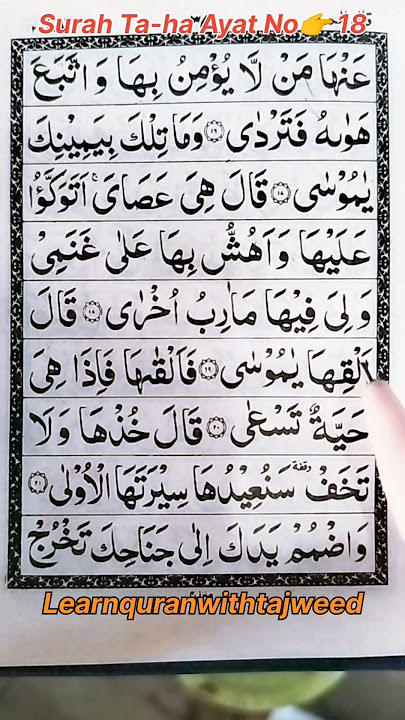 Surah Ta-ha Ayat No👉18
عَنْهَا مَنْ لَّا يُؤْمِنُ بِهَا وَ اتَّبَعَ
هَوٰىهُ فَتَرْدٰى ﴿۱۶﴾ وَمَا تِلْكَ بِيَمِيْنِكَ
يٰمُوْسٰى ﴿۱۷﴾ قَالَ هِىَ عَصَاىَ ۚ اَتَوَكَّؤُا
عَلَيْهَا وَ اَهُشُّ بِهَا عَلٰى غَنَمِىْ
وَ لِىَ فِيْهَا مَاٰرِبُ اُخْرٰى ﴿۱۸﴾ قَالَ
اَلْقِهَا يٰمُوْسٰى ﴿۱۹﴾ فَاَلْقٰىهَا فَاِذَا هِىَ
حَيَّةٌ تَسْعٰى ﴿۲۰﴾ قَالَ خُذْهَا وَ لَا
تَخَفْ وقفة سَنُعِيْدُهَا سِيْرَتَهَا الْاُوْلٰى ﴿۲۱﴾
وَ اضْمُمْ يَدَكَ اِلٰى جَنَاحِكَ تَخْرُجْ
Learnquranwithtajweed